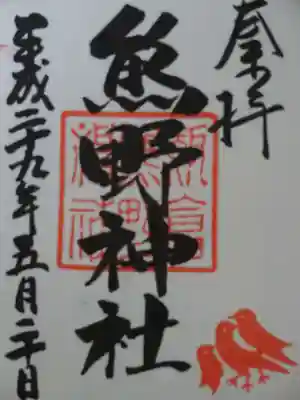 奉拝
熊野神社
平成二十九年五月二十日